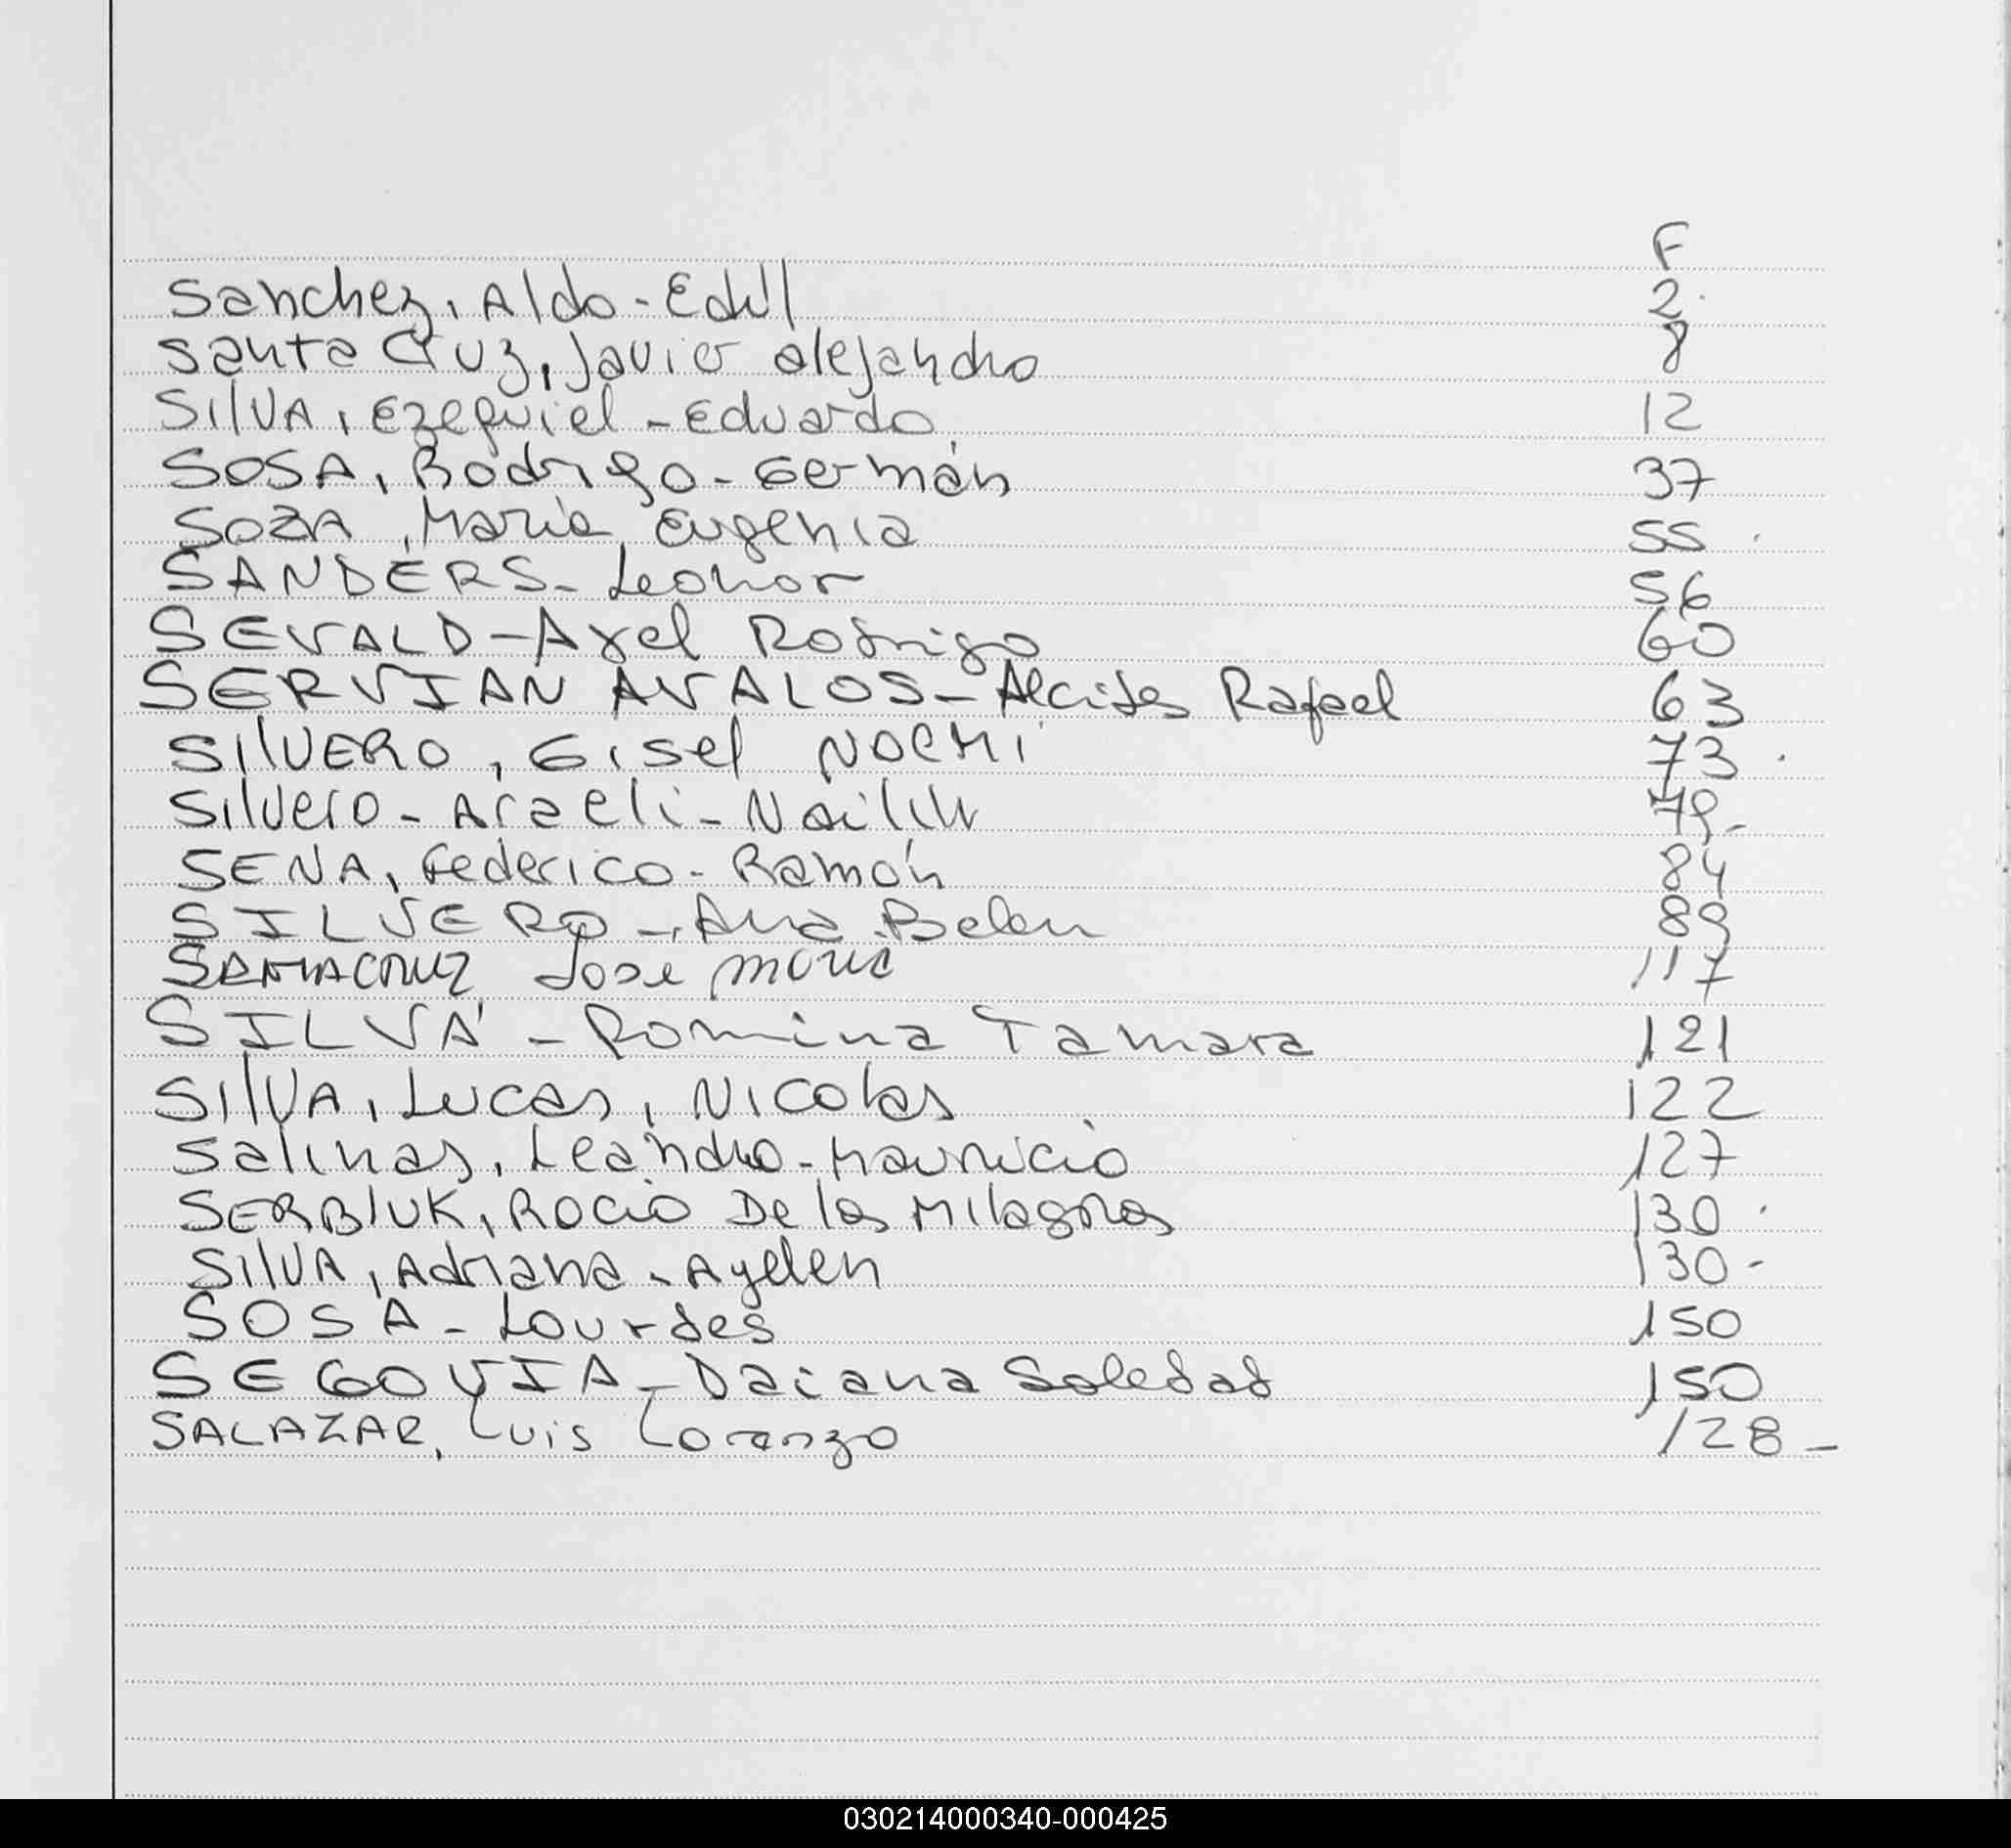 F
Sanchez, Aldo - Edil 2
Santa Cruz, Javier alejandro 8
SIlVA, Ezequiel - Eduardo 12
SOSA, Rodrigo - Germán 37
SOZA, María Eugenia 55
SANDERS - Leonor 56
SEVALD - Axel Rodrigo 60
SERVIAN AVALOS - Alcides Rafael 63
SIlVERO, Gisel NOEMI 73
Silvero - Araeli - 79
SENA, Federico - Ramón 84
SILVERO - Ana Belen 89
SANTACRUZ José 117
SILVA - Romina Tamara 121
SIlVA, Lucas, Nicolas 122
Salinas, Leandro - Mauricio 127
SERBIUK, Rocio De los Milagros 130
SIlVA, Adriana - Ayelen 130 -
SOSA - Lourdes 150
SEGOVIA - Daiana Soledad 150
SALAZAR, Luis Lorenzo 128 -
030214000340-000425